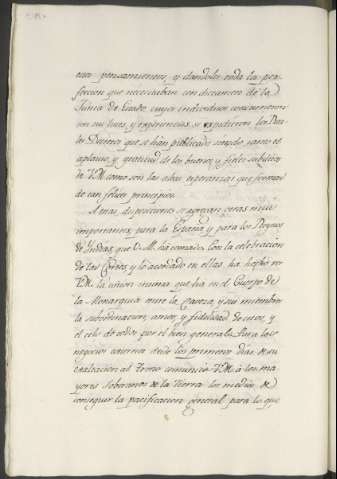 estos pensamientos, y dandoles toda la per-
feccion que necesitaban con dictamen de la
Junta de Estado, cuyos individuos concurrieron
con sus luces, y experiencias, se expidieron los Rea-
les Decretos que se han publicado siendo tanto el
aplauso, y gratitud de los buenos, y fieles subditos
de V.M. como son las altas esperanzas que forman
de tan felices principios.
A estas, de otras
importancia para la España y para los Reynos
de Yndias, que V.M. ha tomado. Con la celebracion
de las Cortes, y lo acordado en ellas, ha
V.M. la union intima que ha en el Cuerpo de
la Monarquia entre la Caveza, y sus miembros
la subordinacion, amor, y fidelidad de estos, y
el celo de todos por el bien general. Para los
negocios externos desde los primeros dias de su
exaltacion al trono comunicó V.M. á los ma-
yores Soberanos de la Tierra los medios de
conseguir la pacificacion general, para lo que